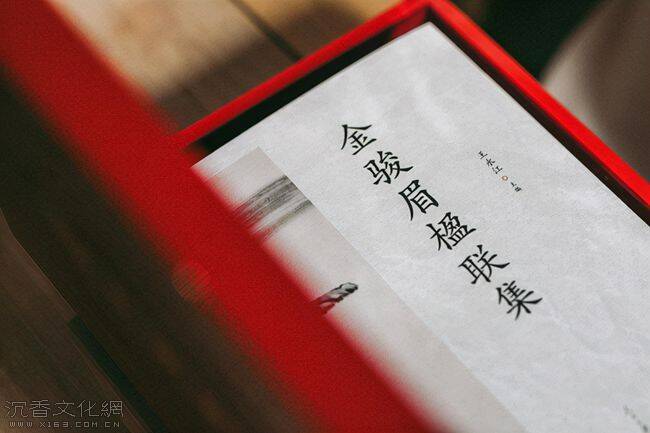 金骏眉楹联集
王永江 主编
沉香文化網
WWW.X163.COM.CN